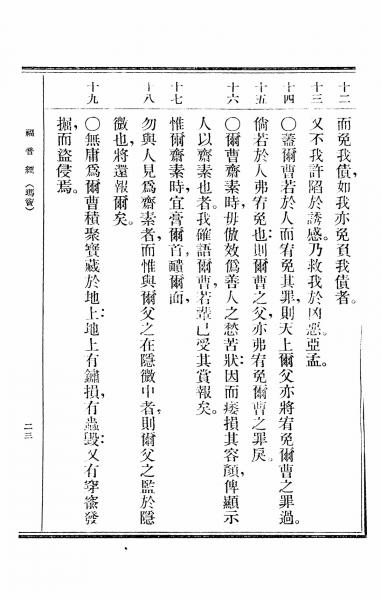 十二 而免我債，如我亦免負我債者。
十三 又不我許陷於誘感。乃救我於凶惡。亞孟。
十四 〇蓋爾曹若於人而宥免其罪，則天上爾父亦將宥免爾曹之罪過。
十五 倘若於人弗宥免也：則爾曹之父，亦弗宥免爾曹之罪戾。
十六 〇爾曹齋素時，毋倣效僞善人之愁苦狀：因而痿損其容顏，俾顯示
人以齋素也者。我確語爾曹，若輩已受其賞報矣。
十七 惟爾齋素時，宜膏爾首，靧爾面，
十八 勿與人見爲齋素者，而惟與爾父之在隱微中者，則爾父之監於隱
微也，將還報爾矣。
十九 〇無庸爲爾曹積聚寶藏於地上：地上有鏽損，有蟲毀：又有穿窬發
掘，而盜侵焉。
福音經（瑪竇）
二三